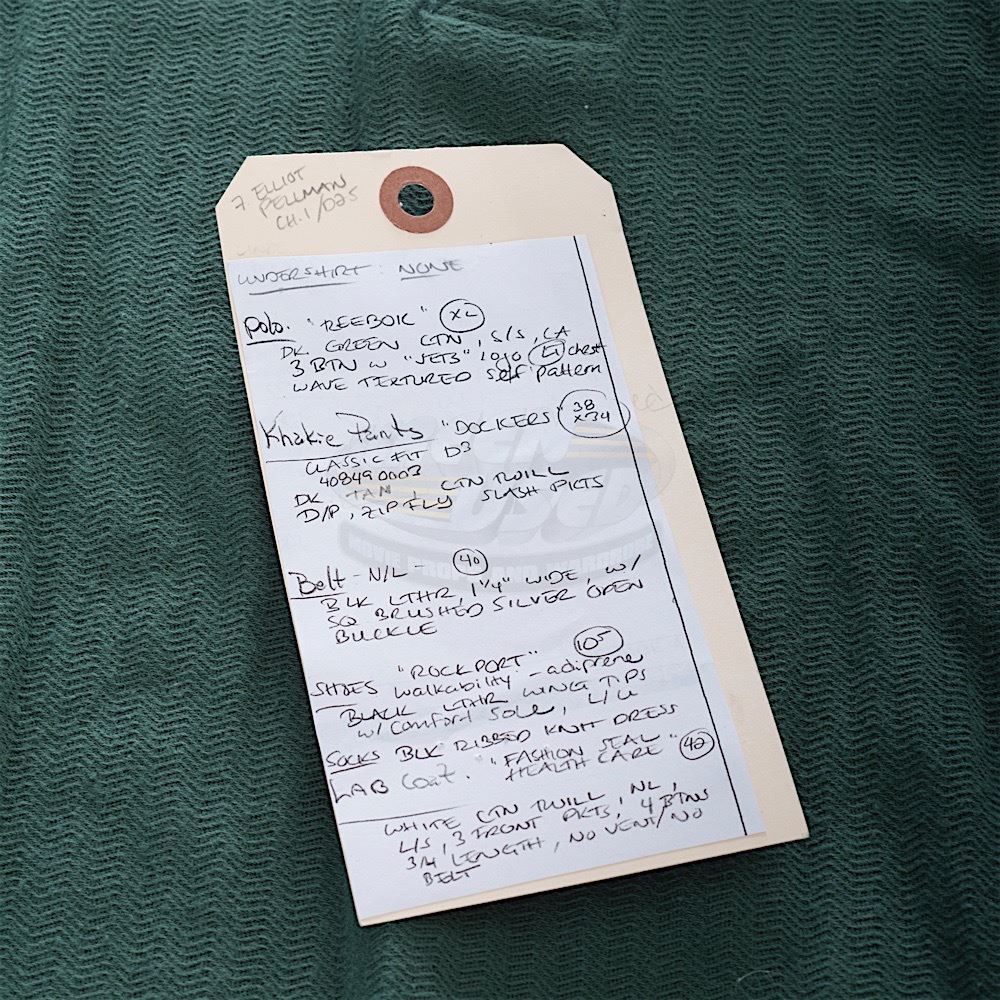 7 ELLIOT
PELLMAN
CH.1/D25
UNDERSHIRT: NONE
Polo. "REEBOK" XL
DK GREEN CTN, S/S, CA
3 BTN w "JETS" logo (L) chest
WAVE TEXTURED self pattern
Khakie Pants "DOCKERS" 38 x 34
CLASSIC FIT D3
408490003
DK TAN, CTN TWILL
D/P, ZIP FLY SLASH PKTS
Belt - N/L - 40
BLK LTHR, 1 1/4" WIDE, w/
SQ BRUSHED SILVER OPEN
BUCKLE
"ROCKPORT" 10⁵
SHOES walkability - adiprene
BLACK LTHR WING TIPS
w/ comfort sole, L/U
SOCKS BLK RIBBED KNIT DRESS
LAB Coat. "FASHION SEAL 42
HEALTH CARE"
WHITE CTN TWILL, NL,
L/S, 3 FRONT PKTS, 4 BTNS
3/4 LENGTH, NO VENT/NO
BELT